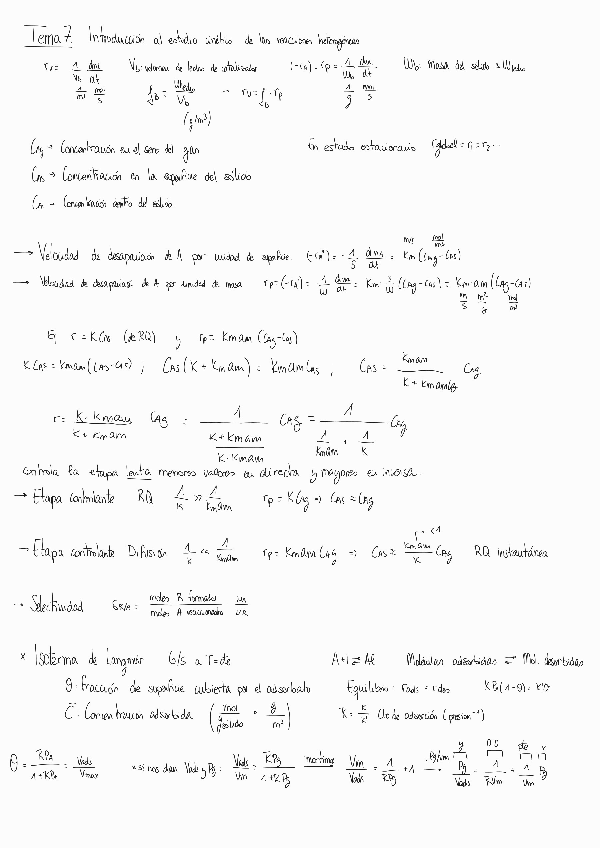 Tema 7. Introducción al estudio cinético de las reacciones heterogéneas
rv = 1/Vb dni/dt   Vb: volumen de lecho de catalizador   (-rA) = rp = 1/Wb dni/dt   Wb: masa del sólido = Wlecho
1/m³ mol/s   ρb = Wlecho/Vb → rv = ρb · rp   1/g mol/s
(g/m³)
CAg → Concentración en el seno del gas   En estado estacionario rglobal = r1 = r2 ...
CAs → Concentración en la superficie del sólido
CA → Concentración dentro del sólido
→ Velocidad de desaparición de A por unidad de superficie (-rA'') = - 1/S dnA/dt = Km (CAg - CAs)
→ Velocidad de desaparición de A por unidad de masa rp = (-rA) = 1/W dnA/dt = Km · S/W (CAg - CAs) = Km · am (CAg - CAs)
m/s m²/g mol/m³
r = K CAs (de RQ) y rp = Km am (CAg - CAs)
K CAs = Km am (CAg - CAs) ; CAs (K + Km am) = Km am CAg , CAs = Km am / K + Km am CAg
r = K · Km am / K + Km am CAg = 1 / (K + Km am / K · Km am) CAg = 1 / (1/Km am + 1/K) CAg
controla la etapa lenta menores valores en directa y mayores en inversa
→ Etapa controlante RQ 1/K >> 1/Km am   rp = K CAg → CAs ≈ CAg
→ Etapa controlante Difusión 1/K << 1/Km am   rp = Km am CAg → CAs ≈ Km am/K CAg   RQ instantánea
<1
Selectividad   SR/A = moles R formados / moles A reaccionados
* Isoterma de Langmuir G/S a T=cte   A + l ⇄ Al   Moléculas adsorbidas ⇄ Mol. desorbidas
θ: fracción de superficie cubierta por el adsorbato   Equilibrio rads = rdes
C: Concentración adsorbida (mol/g sólido o g/m³)   K = k/k' cte de adsorción (presión⁻¹)
θ = KPA / 1+KPA = Vads/Vmax   * si nos dan Vads y Pg: Vads/Vm = KPg / 1+KPg   Vm/Vads = 1/KPg + 1   Pg/Vm   Pg/Vads = 1/KVm + 1/Vm Pg